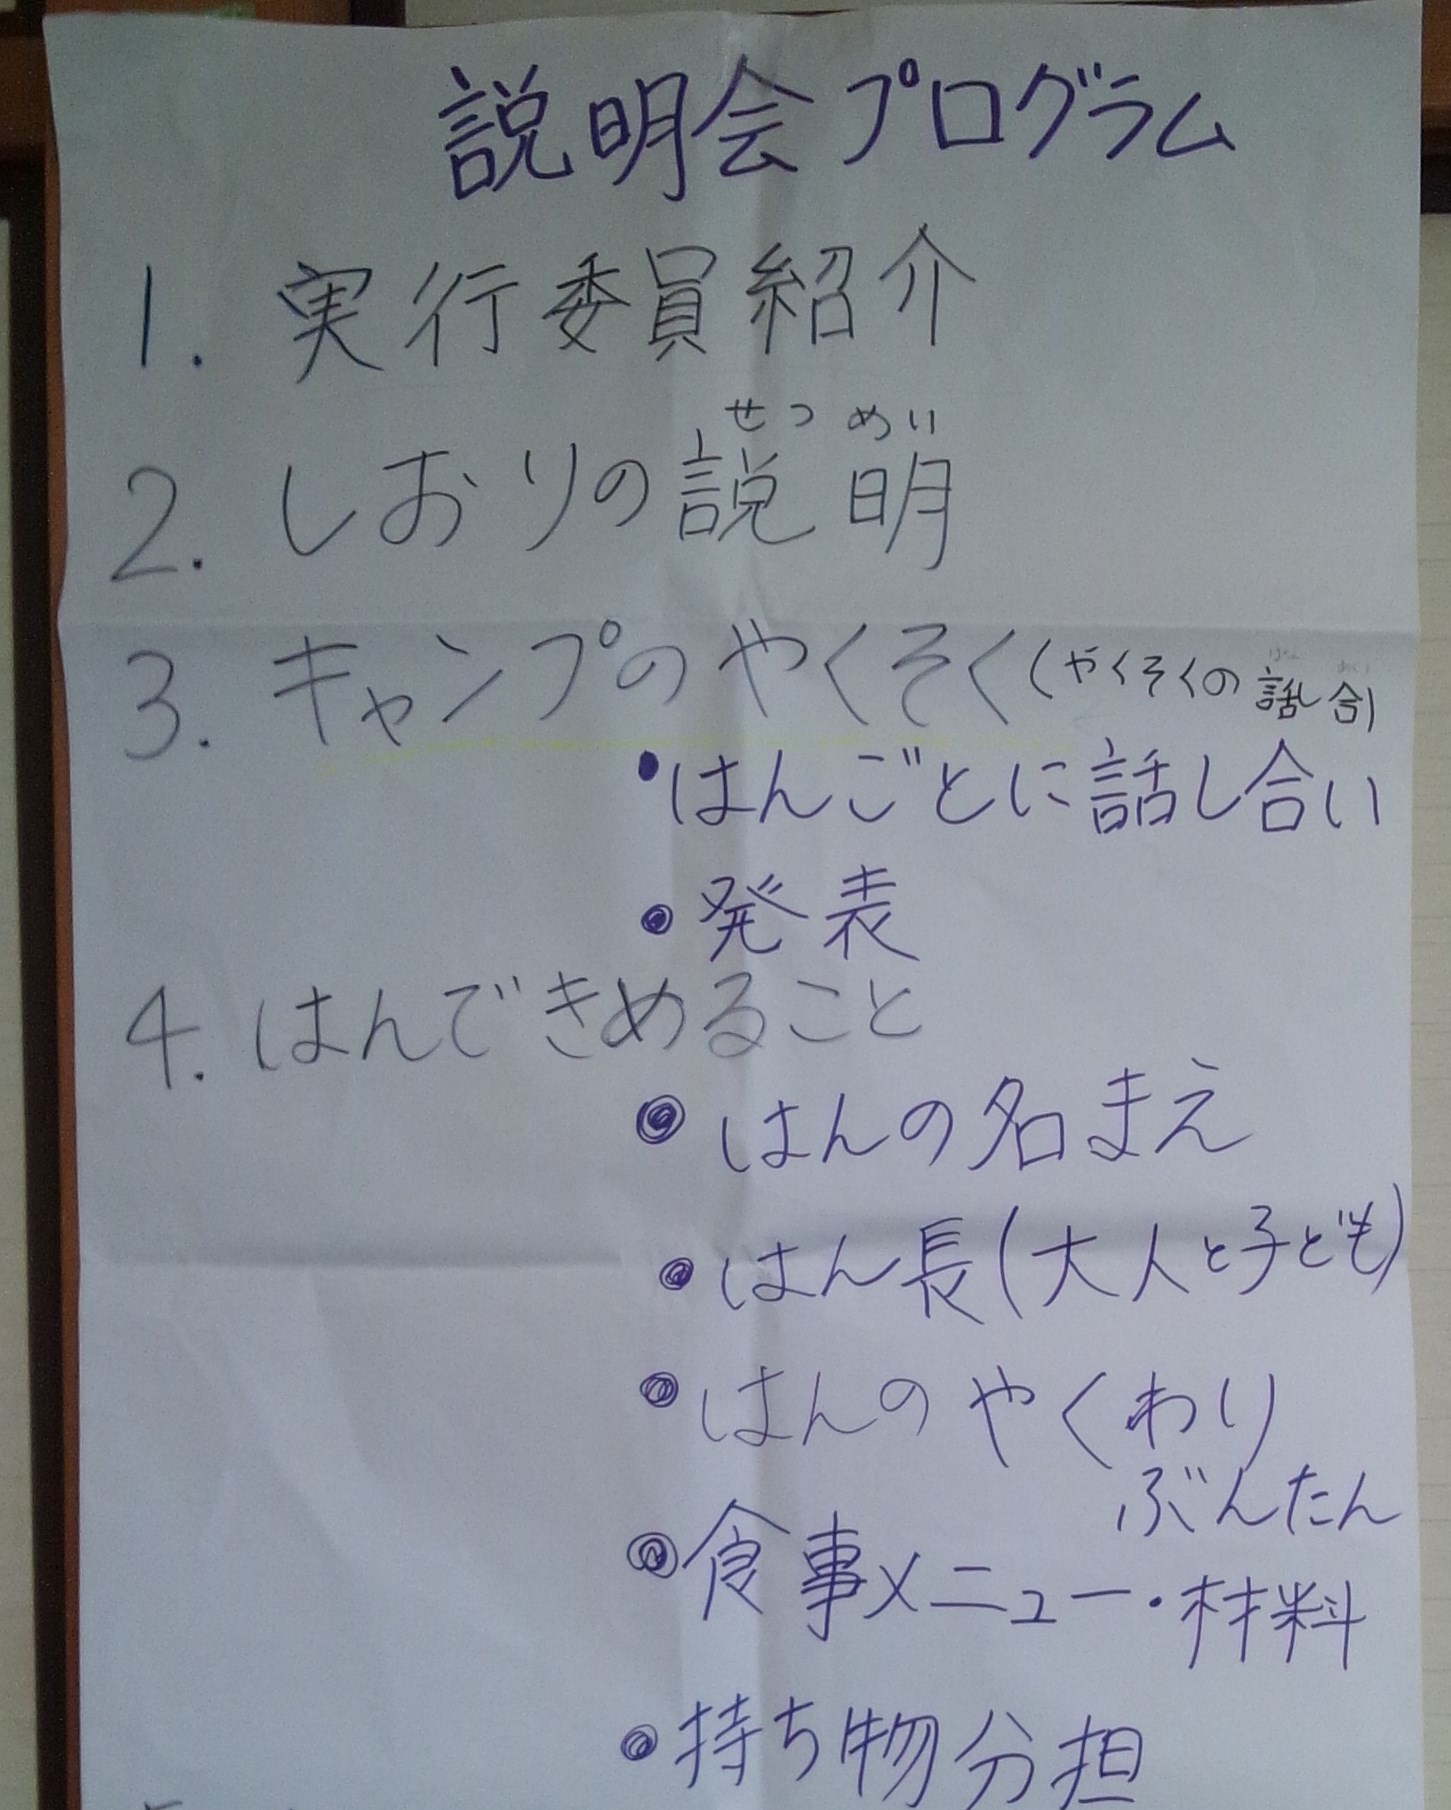 説明会プログラム
1. 実行委員紹介
せつめい
2. しおりの説明
3. キャンプのやくそく(やくそくの話し合)
•はんごとに話し合い
•発表
4. はんできめること
•はんの名まえ
•はん長(大人と子ども)
•はんのやくわり
ぶんたん
•食事メニュー・材料
•持ち物分担